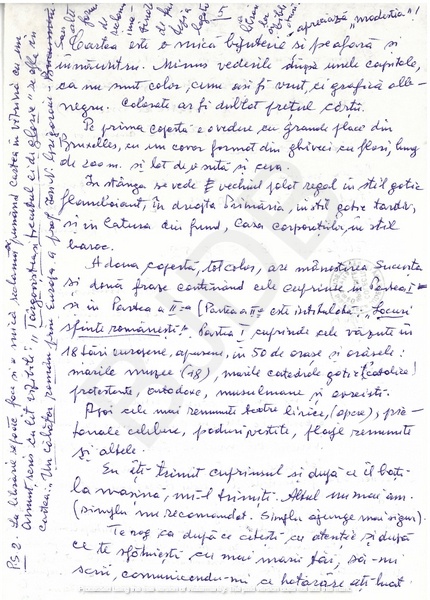 apreciază "modestia"!
Cartea este o mică bijuterie și pe afară și
înnăuntru. Minus vederile după unele capitole,
ca nu sunt color, cum as fi vrut, ci grafică alb-
negru. Colorate ar fi dublat prețul cărții.
Pe prima copertă e o vedere cu grande place din
Bruxelles, cu un covor format din ghivece cu flori, lung
de 200 m. si lat de o sută și ceva.
În stânga se vede vechiul palat regal în stil gotic
flamboiant, în dreapta Primăria, in stil gotic tardiv,
și în latura din fund, Casa corporatiilor, in stil
baroc.
A doua copertă, tot color, are mânăstirea Sucevita
și două fraze continând cele cuprinse in Partea I-
si în Partea a II-a (Partea a II-a este intitulată: „Locuri
sfinte românești". Partea I, cuprinde cele văzute in
18 tări europene, apusene, in 50 de orase si orășele:
marile muzee (48), marile catedrale gotice (catolice)
protestante, ortodoxe, musulmane și ovreiesti.
Apoi cele mai renumite teatre lirice, (opere), pie-
tonale celebre, poduri vestite, plaje renumite
și altele.
Eu îți trimit cuprinsul si după ce îl bați
la mașină, mi-l trimiți. Altul nu mai am.
(simplu nu recomandat. Simplu ajunge mai sigur).
Te rog ca după ce citesti cu atenție și după
ce te sfătuiești cu mai marii tăi, să-mi
scrii, comunicându-mi ce hotărâre ați luat.
PS 2. La librărie se poate face si o mică reclamă punând Cartea în vitrină cu un
anunt scris cu lit. vizibile: „Târgoviștea, trecutul ei de glorie" se află în
cartea: „Un călător român prin Europa" a prof. Grigorescu